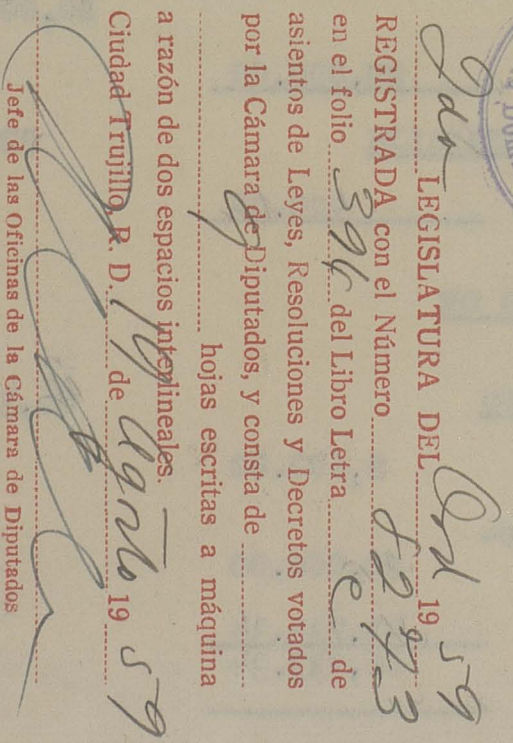 2da LEGISLATURA DEL Ord 19 59
REGISTRADA con el Número 8273
en el folio 394 del Libro Letra e de
asientos de Leyes, Resoluciones y Decretos votados
por la Cámara de Diputados, y consta de
hojas escritas a máquina
a razón de dos espacios interlineales.
Ciudad Trujillo, R. D. 19 de Agosto 19 59
Jefe de las Oficinas de la Cámara de Diputados